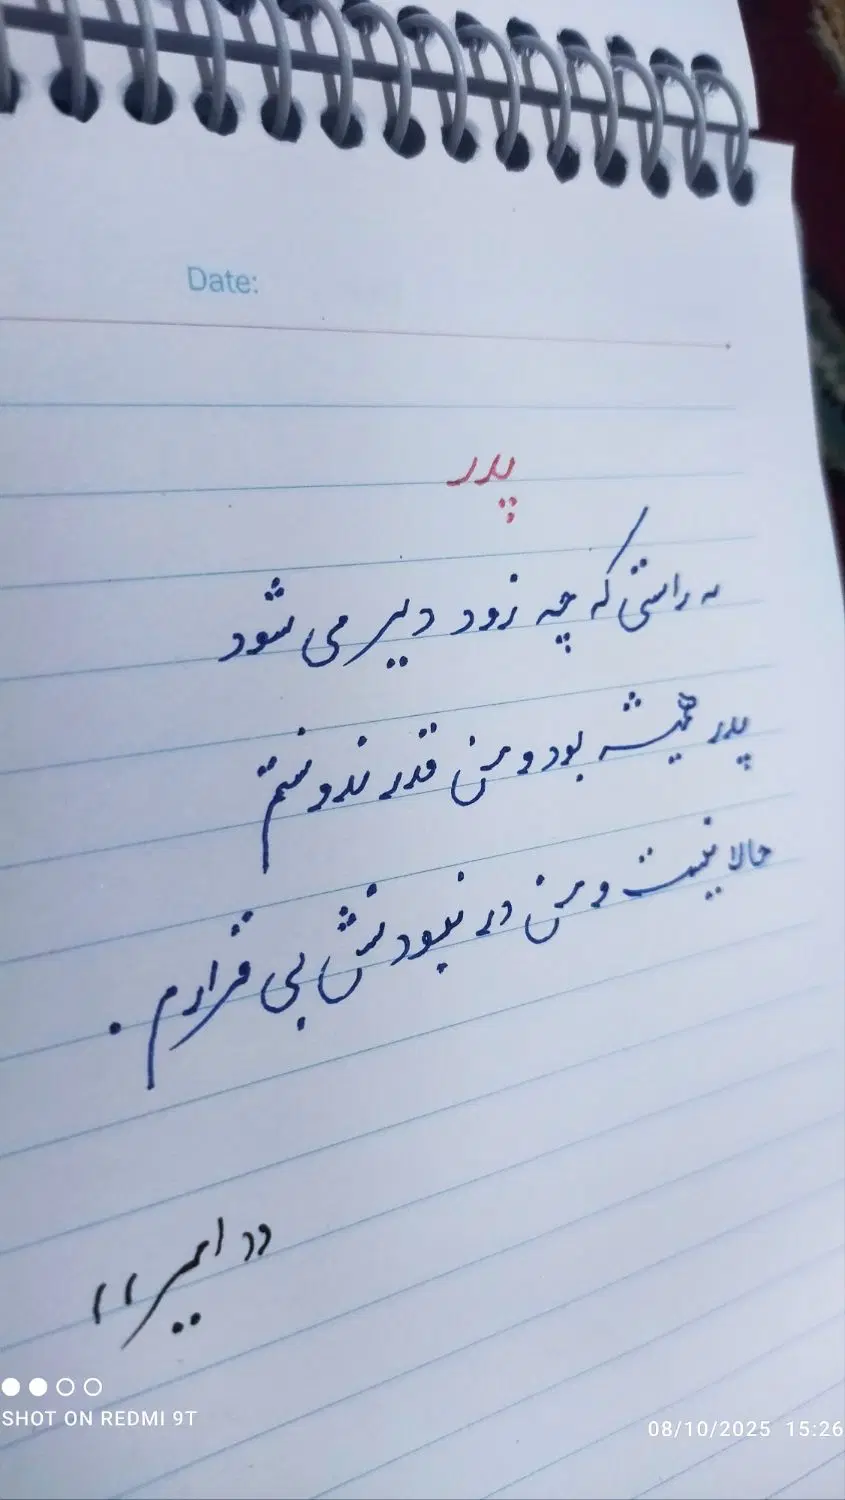 Date:
پدر
به راستی که چه زود دیر می شود
پدر همیشه بود و من قدر ندونستم
حالا نیست و من در نبودنش بی قرارم .
"امیر"
SHOT ON REDMI 9T
08/10/2025 15:26